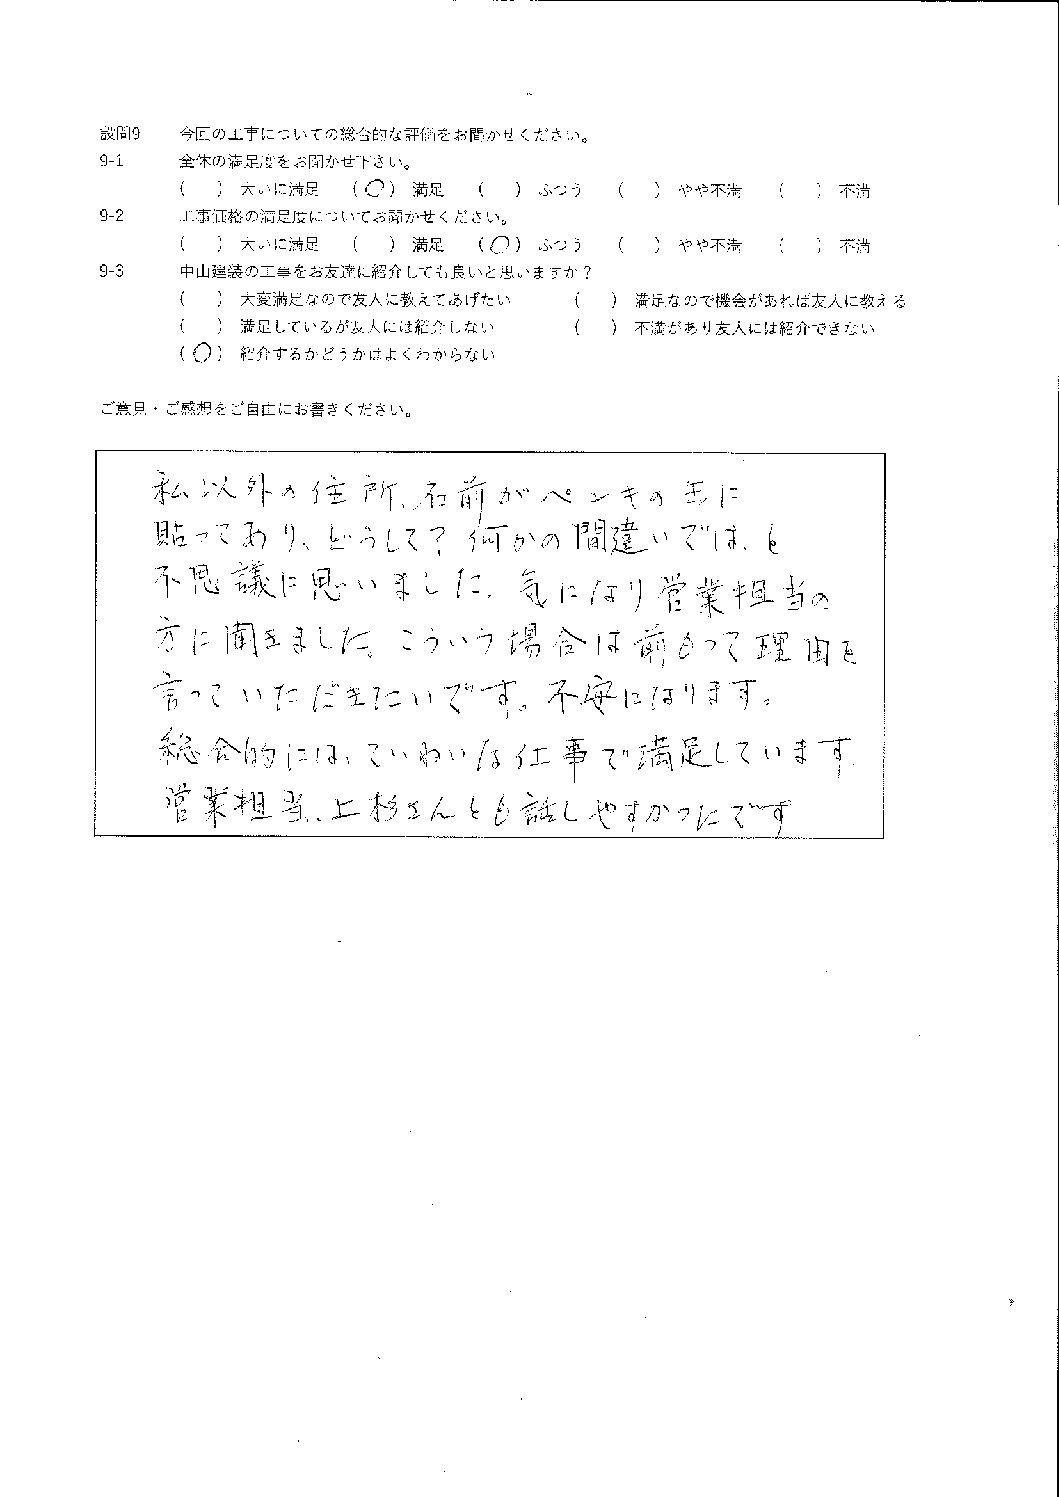 設問9 今回の工事についての総合的な評価をお聞かせください。
9-1 全体の満足度をお聞かせ下さい。
( ) 大いに満足 (○) 満足 ( ) ふつう ( ) やや不満 ( ) 不満
9-2 工事価格の満足度についてお聞かせください。
( ) 大いに満足 ( ) 満足 (○) ふつう ( ) やや不満 ( ) 不満
9-3 中山建装の工事をお友達に紹介しても良いと思いますか？
( ) 大変満足なので友人に教えてあげたい ( ) 満足なので機会があれば友人に教える
( ) 満足しているが友人には紹介しない ( ) 不満があり友人には紹介できない
(○) 紹介するかどうかはよくわからない
ご意見・ご感想をご自由にお書きください。
私以外の住所、名前がペンキの缶に
貼ってあり、どうして？何かの間違いでは、と
不思議に思いました。気になり営業担当の
方に聞きました。こういう場合は前もって理由を
言っていただきたいです。不安になります。
総合的には、ていねいな仕事で満足しています。
営業担当、上杉さんとも話しやすかったです